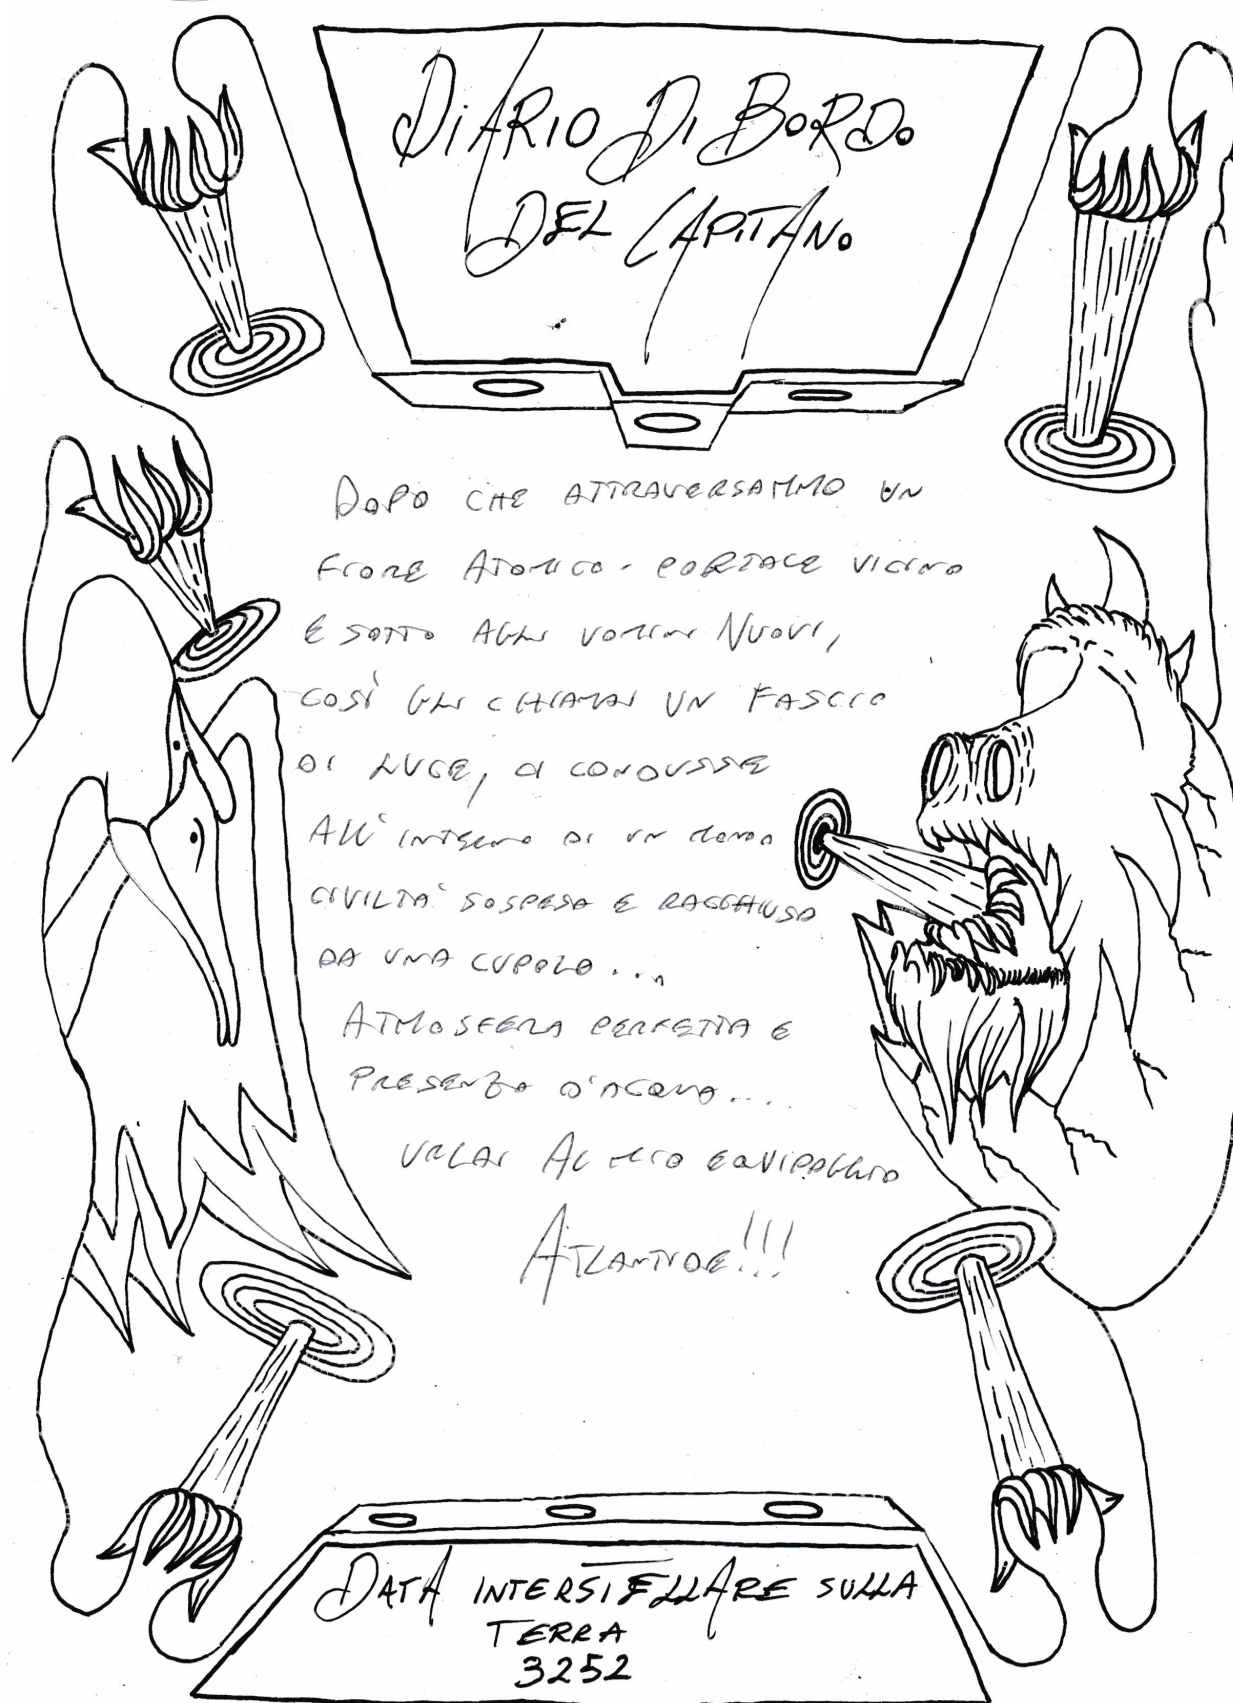 DIARIO DI BORDO
DEL CAPITANO
DOPO CHE ATTRAVERSAMMO UN
FIORE ATOMICO - PORTALE VICINO
E SOTTO AGLI UOMINI NUOVI,
COSÌ GLI CHIAMAI UN FASCIO
DI LUCE, CI CONDUSSE
ALL'INTERNO DI UN MONDO
CIVILTA' SOSPESA E RACCHIUSA
DA UNA CUPOLA...
ATMOSFERA PERFETTA E
PRESENZA D'ACQUA...
URLAI AL MIO EQUIPAGGIO
ATLANTIDE!!!
DATA INTERSTELLARE SULLA
TERRA
3252